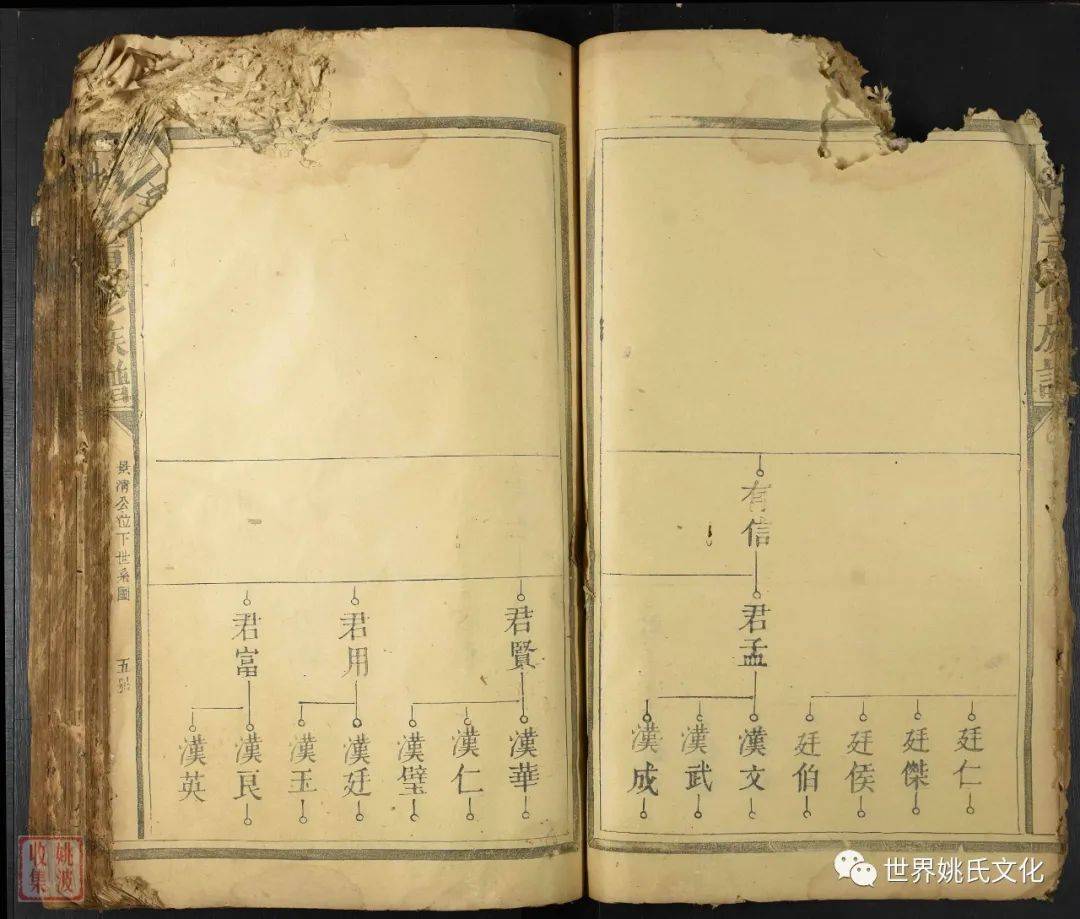 有信
君孟
廷仁
廷傑
廷侯
廷伯
漢文
漢武
漢成
君賢
君用
君富
漢華
漢仁
漢璧
漢廷
漢玉
漢民
漢英
修族譜
修族譜
景清公位下世系圖
五
姚波收集
世界姚氏文化